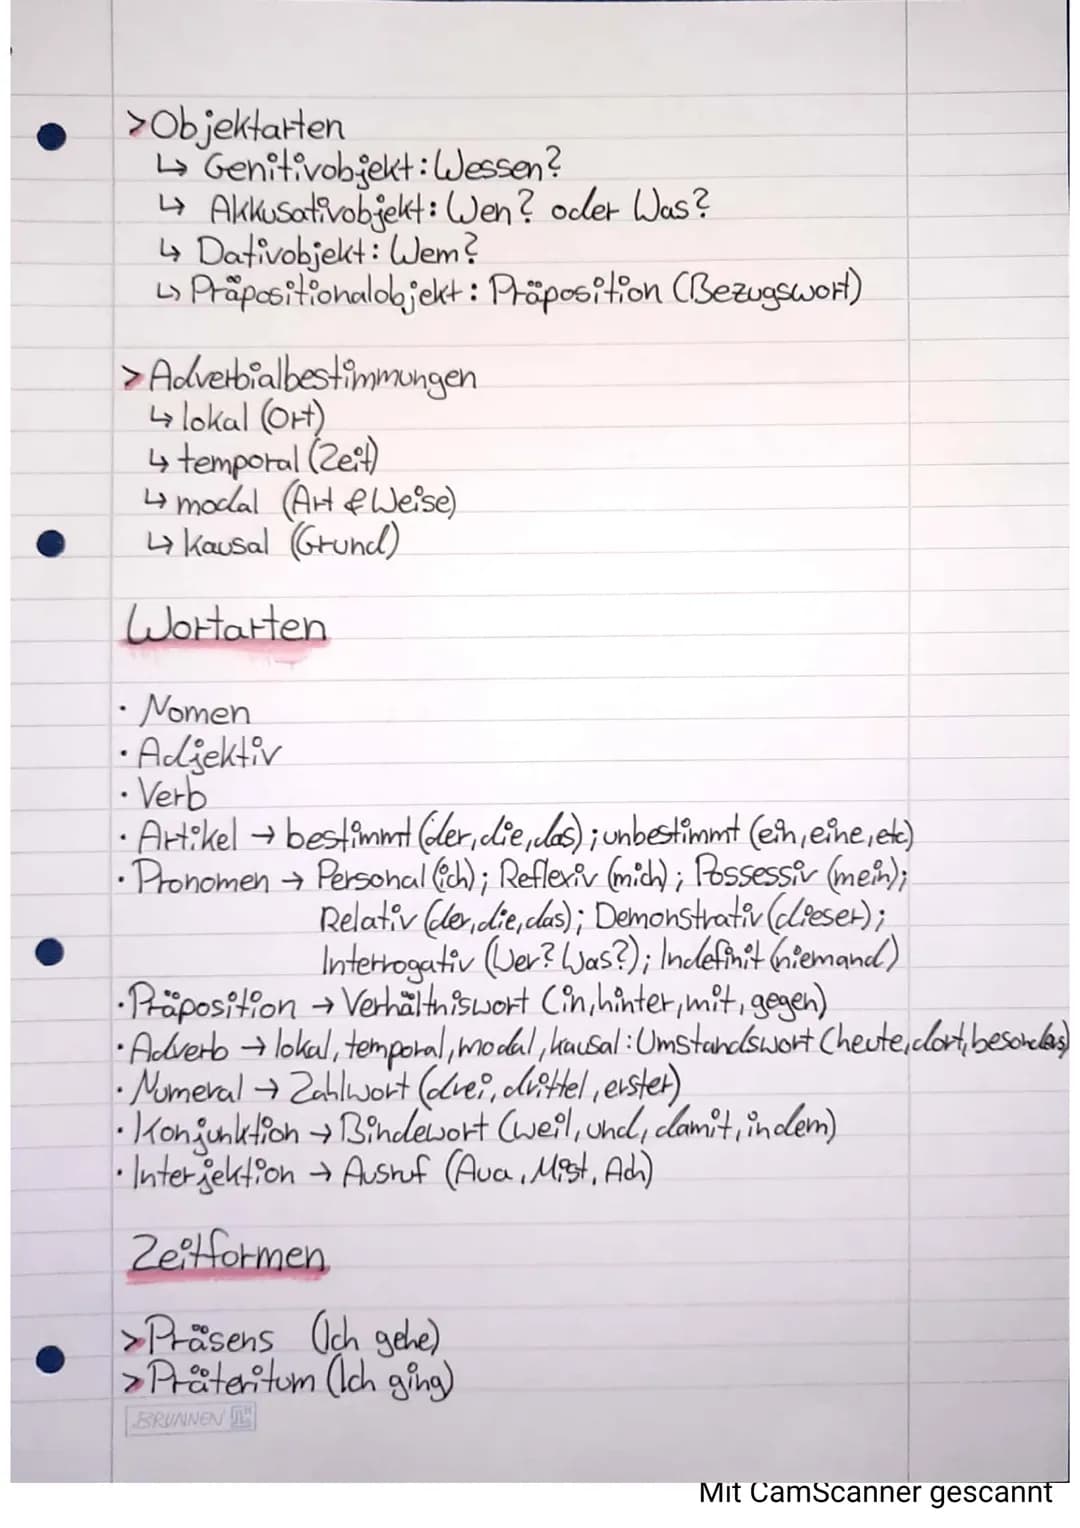 >Objektarten
↳ Genitivobjekt: Wessen?
↳ Akkusativobjekt: Wen? oder Was?
↳ Dativobjekt: Wem?
↳ Präpositionalobjekt: Präposition (Bezugswort)
> Adverbialbestimmungen
↳ lokal (Ort)
↳ temporal (Zeit)
↳ modal (Art & Weise)
↳ kausal (Grund)
Wortarten
· Nomen
· Adjektiv
· Verb
· Artikel → bestimmt (der, die, das); unbestimmt (ein, eine, etc)
· Pronomen → Personal (ich); Reflexiv (mich); Possessiv (mein);
Relativ (der, die, das); Demonstrativ (dieser);
Interrogativ (Wer? Was?); Indefinit (niemand)
· Präposition → Verhältniswort (in, hinter, mit, gegen)
· Adverb → lokal, temporal, modal, kausal: Umstandswort (heute, dort, besonders)
· Numeral → Zahlwort (drei, drittel, erster)
· Konjunktion → Bindewort (weil, und, damit, indem)
· Interjektion → Ausruf (Aua, Mist, Ach)
Zeitformen
> Präsens (Ich gehe)
> Präteritum (Ich ging)
BRUNNEN
Mit CamScanner gescannt